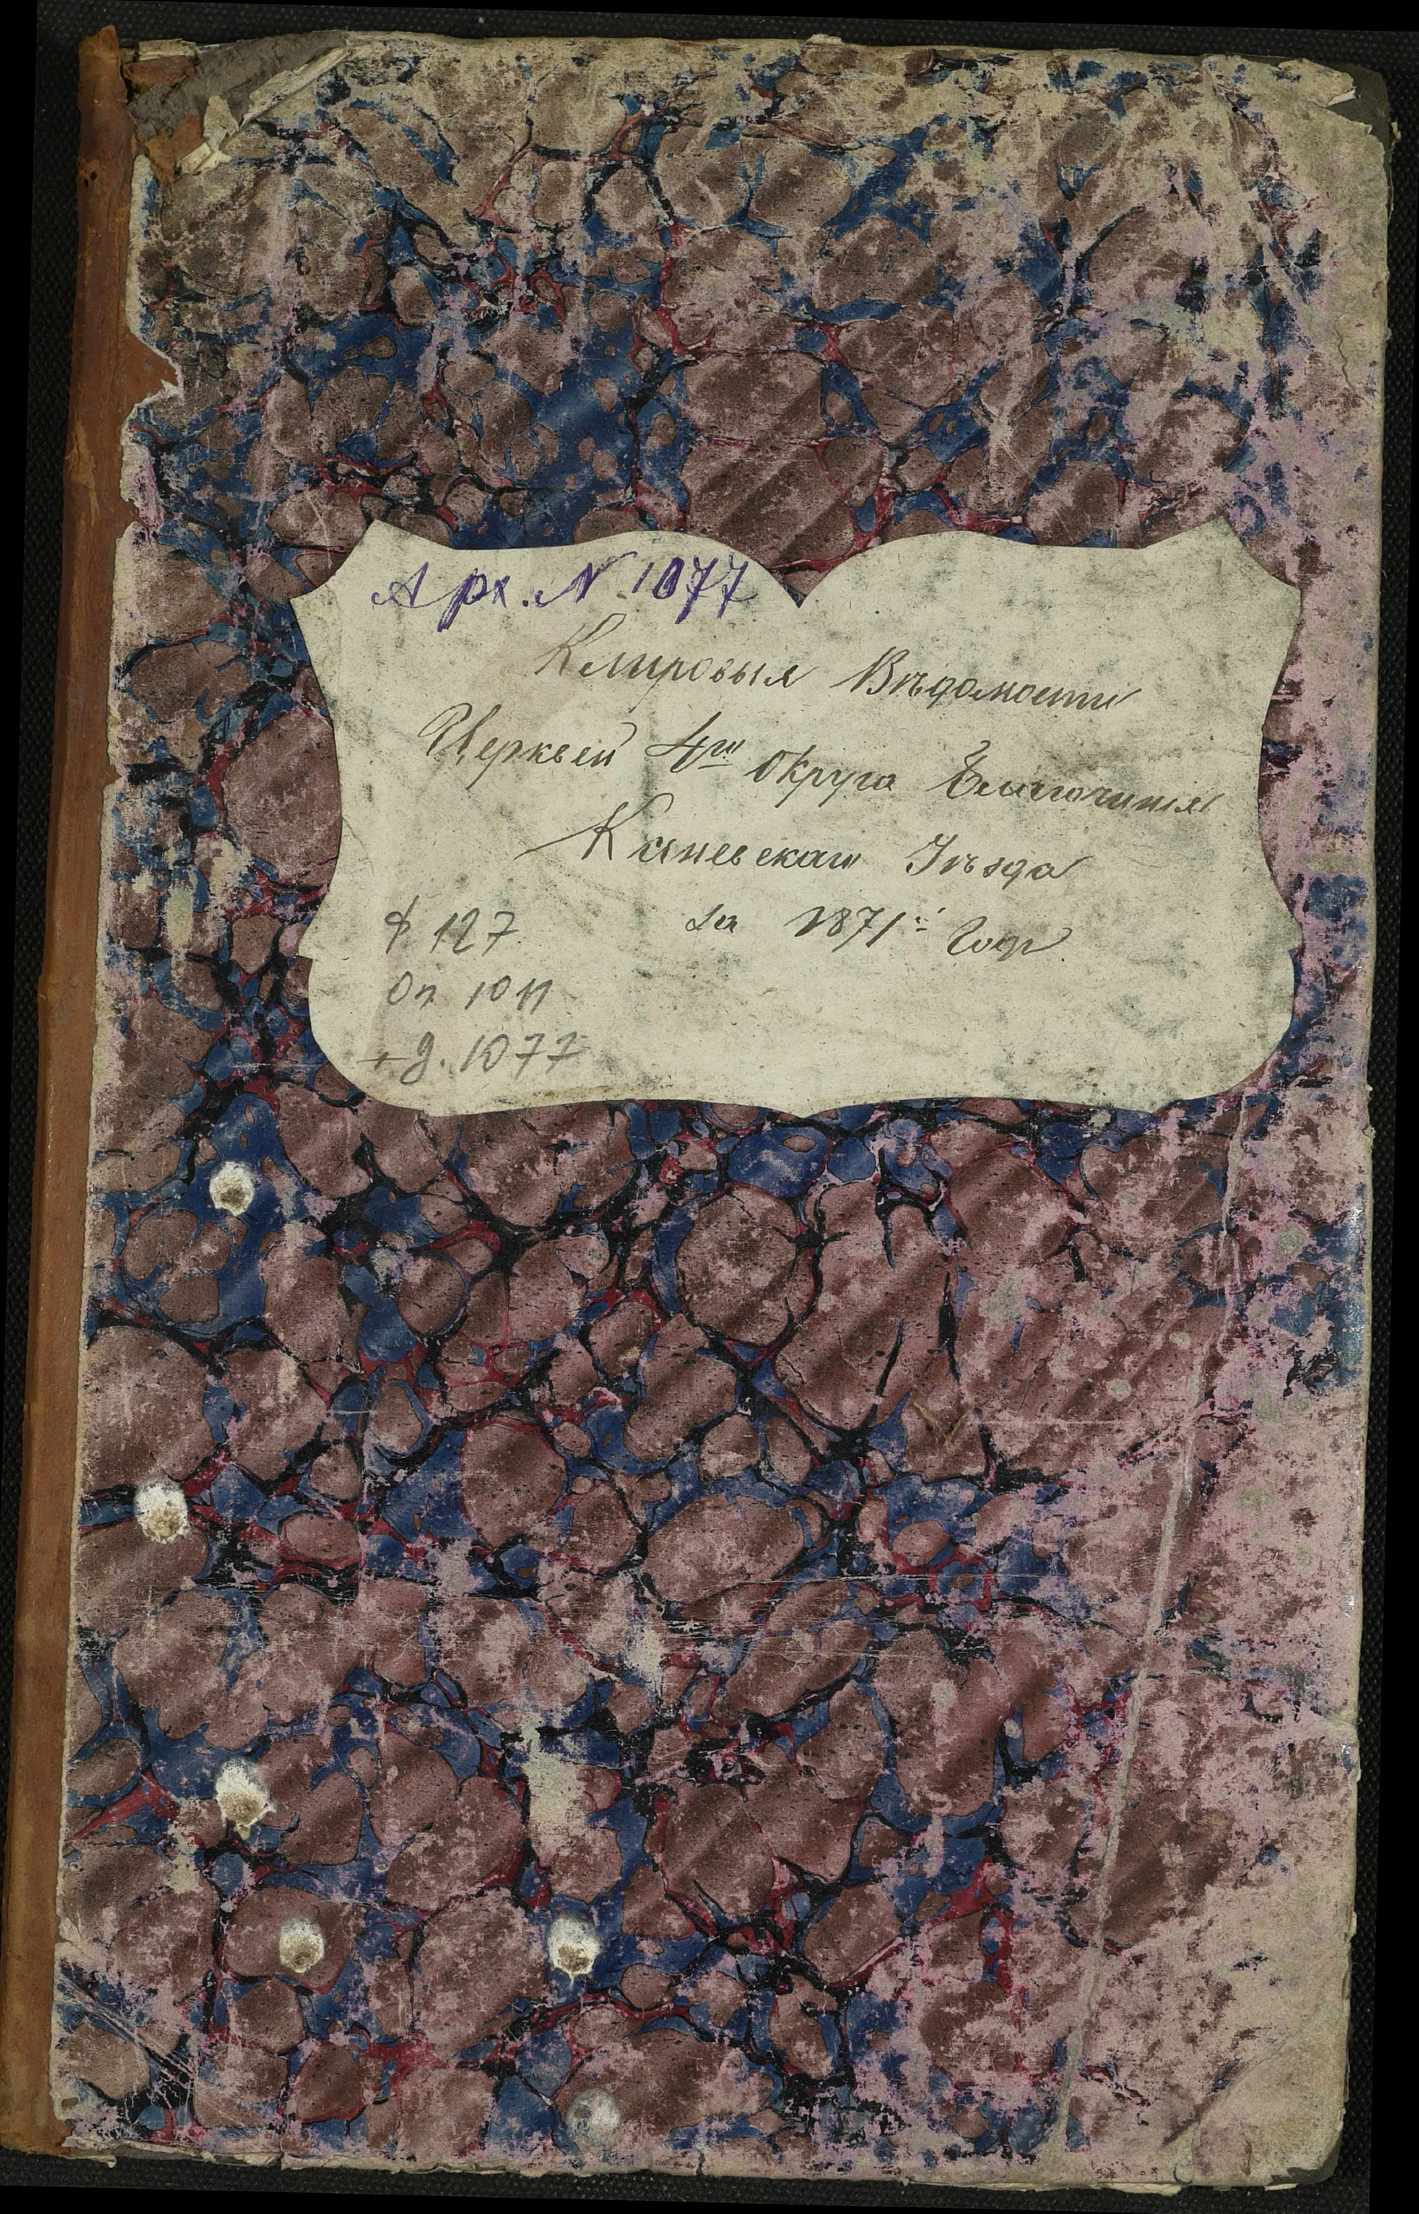 Арх. N. 1077
Клировыя Вѣдомости
Церквей 4го округа Благочинія
Каневскаго Уѣзда
за 1871й Годъ.
ф 127
Оп 1011
+ д. 1077